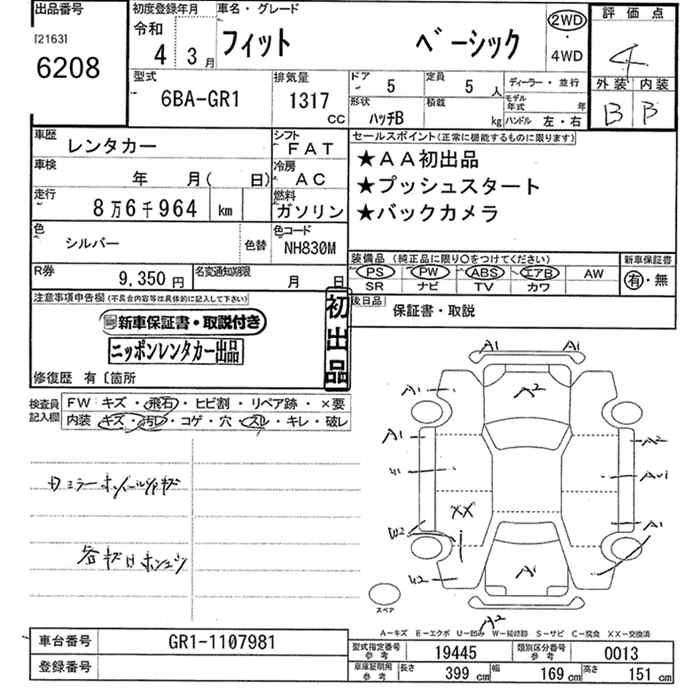 出品番号
[2163]
6208
初度登録年月
令和
4 3月
車名・グレード
フィット ベーシック
2WD
・
4WD
評価点
4
外装 内装
B B
型式
6BA-GR1
排気量
1317
CC
ドア
5
定員
5 人
形状
ハッチB
積載
kg
ディーラー・並行
モデル年式 年
ハンドル 左・右
車歴
レンタカー
シフト
FAT
車検
年 月( 日)
冷房
AC
走行
8万6千964 km
燃料
ガソリン
色
シルバー
色替
色コード
NH830M
R券
9,350円
名変通知期限
月 日
セールスポイント(正常に機能するものに限ります)
★AA初出品
★プッシュスタート
★バックカメラ
装備品(純正品に限り○をつけてください)
PS PW ABS エアB AW
SR ナビ TV カワ
新車保証書
有・無
後日品
保証書・取説
注意事項申告欄(不具合内容等は具体的に記入して下さい)
新車保証書・取説付き
ニッポンレンタカー出品
初出品
修復歴 有〔箇所
検査員記入欄
FW キズ・飛石・ヒビ割・リペア跡・×要
内装 キズ・汚レ・コゲ・穴・スレ・キレ・破レ
A1 A1
A1 A2
A1 A2
U1
XX A1
W2
U2 A1
A2
スペア
A―キズ E―エクボ U―凹み W―補修跡 S―サビ C―腐食 XX―交換済
車台番号
GR1-1107981
登録番号
型式指定番号
参考
19445
類別区分番号
参考
0013
車庫証明用
参考
長さ
399 cm
幅
169 cm
高さ
151 cm